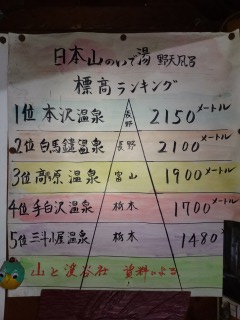 日本山のいで湯 野天風呂
標高ランキング
1位 本沢温泉 長野 2150メートル
2位 白馬鑓温泉 長野 2100メートル
3位 高原温泉 富山 1900メートル
4位 手白沢温泉 栃木 1700メートル
5位 三斗小屋温泉 栃木 1480
山と渓谷社 資料による